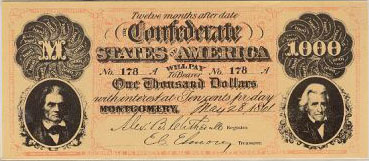 Twelve months after date
Confederate
M 1000
STATES OF AMERICA
WILL PAY
No. 178 A To Bearer No. 178 A
One Thousand Dollars
with interest at Ten cents per day
MONTGOMERY, May 28 1861
Register
E. C. Elmore Treasurer